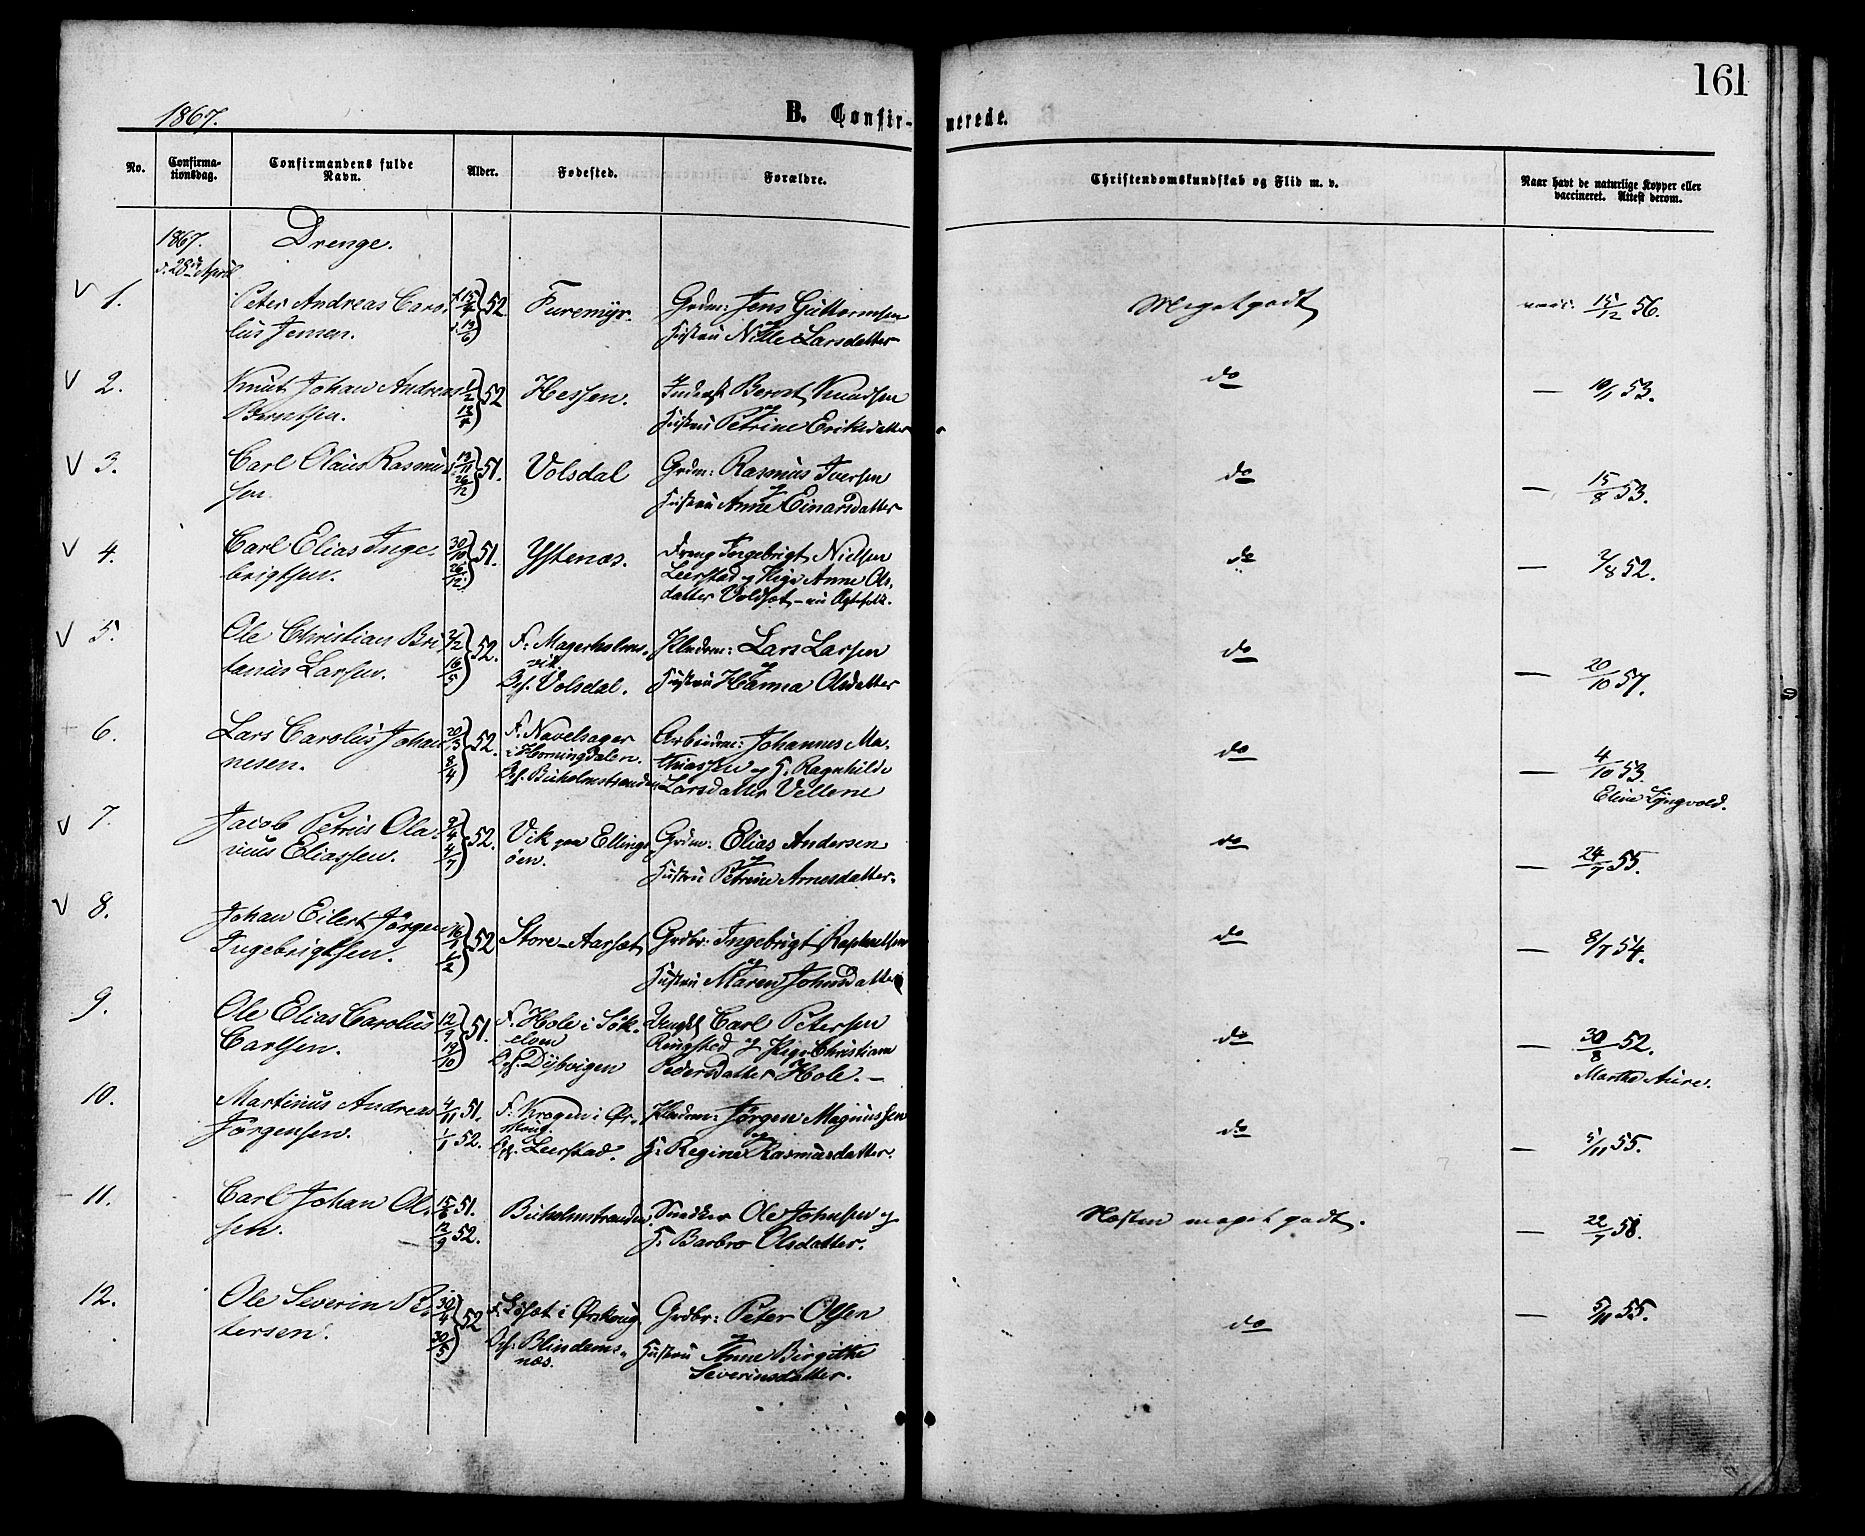 161
1867.
B. Confir-
merede.
No.
Confirma-
tionsdag.
Confirmandens fulde
Navn.
Alder.
Fødested.
Forældre.
Christendomskundskab og Flid m. v.
Naar havt de naturlige Kopper eller
vaccineret. Attest derom.
1867.
28de April
Drenge.
1.
Peter Andreas Caro-
lus Jensen.
15/4 13/6 52
Furemyr.
Grdm: Jens Guttormsen
og
Hustru Nille Larsdatter
Meget godt
vacc. 15/12 56.
2.
Knut Johan Andreas
Berntsen.
52
Hessen.
Inderst Bernt Knudsen
og
Hustru Petrine Eriksdatter
do
— 10/1 53.
3.
Carl Olaus Rasmus-
sen.
13/11 26/12 51.
Volsdal
Grdm: Rasmus Iversen
og
Hustru Anne Einarsdatter
do
— 15/8 53.
4.
Carl Elias Inge-
brigtsen.
30/10 26/12 51.
Ystenæs.
Ingebrigt Nielsen
Leerstad og Pige Anne Ols-
datter Voldsæt – nu Ægtefolk.
do
— 2/8 52.
5.
Ole Christian Bri-
tanus Larsen.
2/2 16/5 52.
F: Magerholms-
vik.
Volsdal.
Pladsm: Lars Larsen
og
Hustru Hanna Olsdatter
do
— 20/10 57.
6.
Lars Carolus Johan-
nesen.
20/3 8/4 52.
F. Navelsager
i Horningdalen.
Buholmstranden
Arbeidsm: Johannes Ma-
thiassen og H. Ragnhilde
Larsdatter Vellene
do
— 4/10 53.
Eline Lyngvold.
7.
Jacob Petrus Ola-
nus Eliassen.
9/4 4/7 52.
Vik paa Ellings-
øen.
Grdm: Elias Andersen
og
Hustru Petrine Arnesdatter.
do
— 24/7 55.
8.
Johan Eilert Jørgen
Ingebrigtsen.
16/1 1/2 52
Store-Aarsæt
Grdbr: Ingebrigt Rasmussen
og
Hustru Maren Johnsdatter
do
— 8/7 54.
9.
Ole Elias Carolus
Carlsen.
12/9 19/10 51.
F. Hole i Søk-
elven
Dybvigen
Ungk. Carl Petersen
Ringsted og Pige Christiane
Pedersdatter Hole. –
do
— 30/8 52.
Marthe Aure.
10.
Martinus Andreas
Jørgensen.
4/11 51.
1/1 52.
F. Krogen i Ør-
skoug.
Leerstad.
Pladsm: Jørgen Magnussen
og
H. Regine Rasmusdatter.
do
— 5/11 55.
11.
Carl Johan Ol-
sen.
15/6 51.
12/9 52.
Buholmstranden.
Snedker Ole Johnsen og
H. Barbro Olsdatter.
Næsten meget godt.
— 22/7 58.
12.
Ole Severin Pe-
tersen.
30/4 30/5 52
F. i Ørskoug.
Blindems-
næs.
Grdbr: Peter Olsen
og
Hustru Anne Birgitte
Severinsdatter.
do
— 5/11 55.